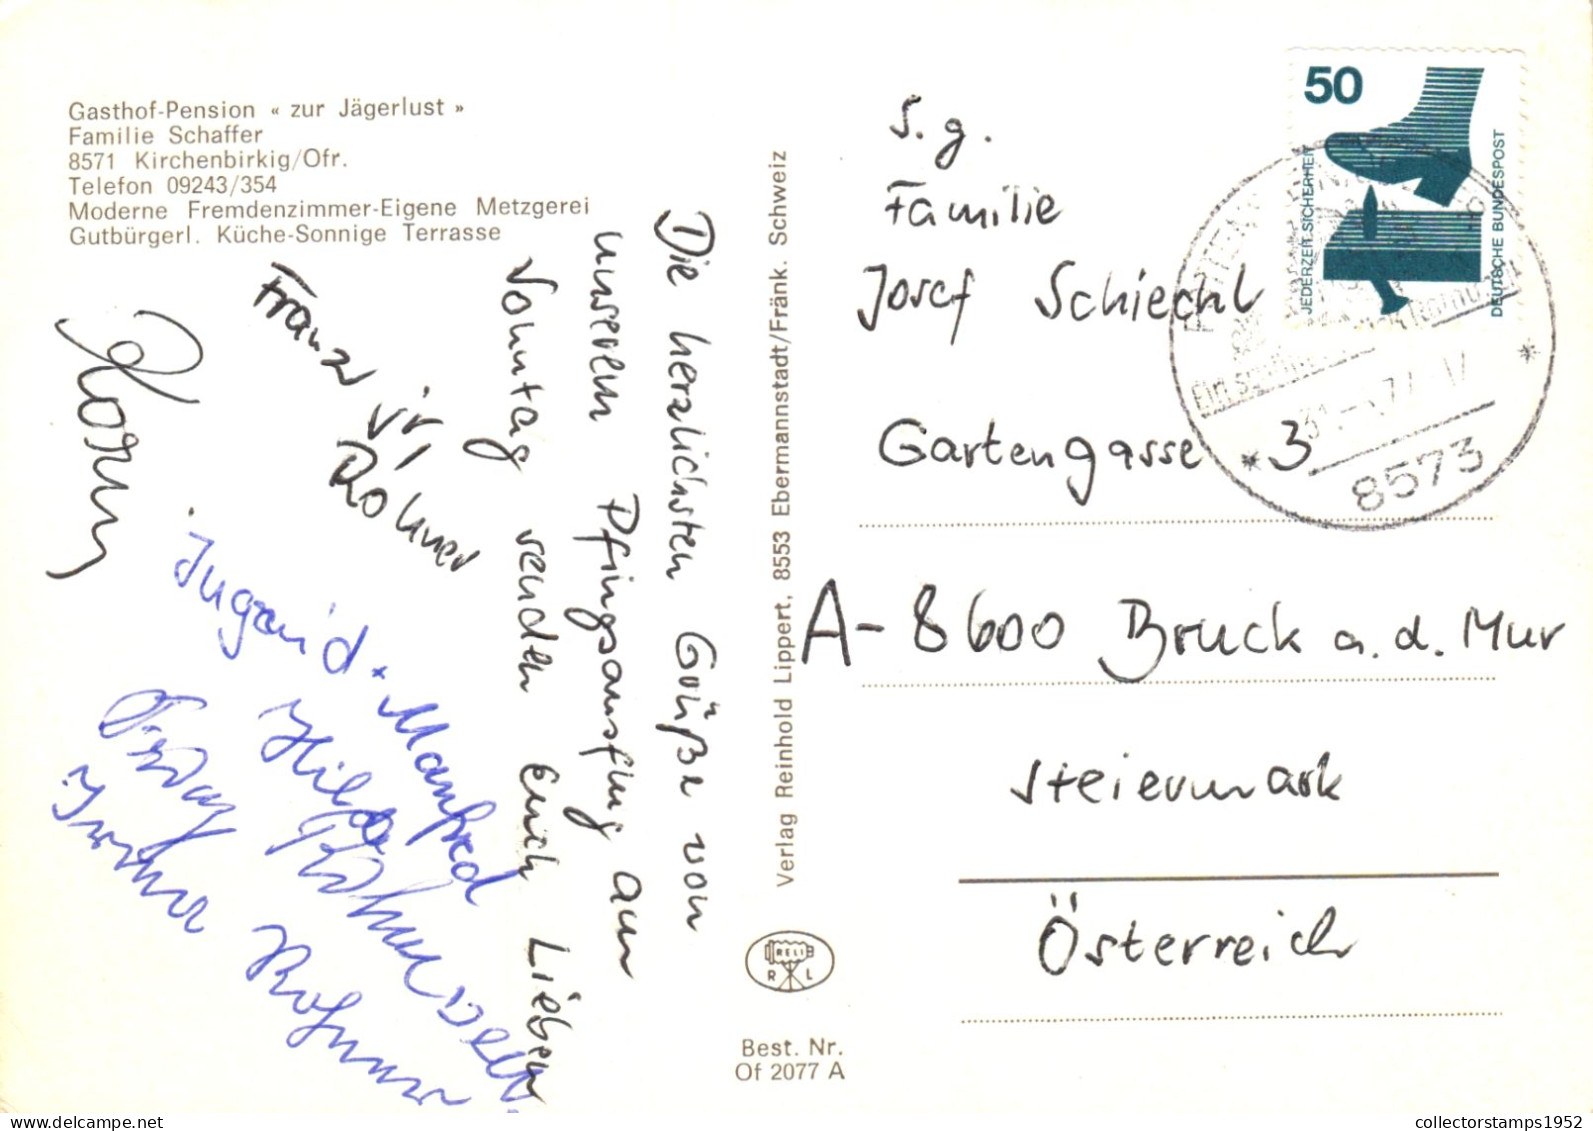 Gasthof-Pension « zur Jägerlust »
Familie Schaffer
8571 Kirchenbirkig/Ofr.
Telefon 09243/354
Moderne Fremdenzimmer-Eigene Metzgerei
Gutbürgerl. Küche-Sonnige Terrasse
Die herzlichsten Grüße von
unserem Pfingsausflug am
Sonntag senden Euch Lieben
Franz
Rohner
Ingrid. Manfred
Hilde
Irma
Verlag Reinhold Lippert, 8553 Ebermannstadt/Fränk. Schweiz
RELI
R L
Best. Nr.
Of 2077 A
50
JEDERZEIT SICHERHEIT
DEUTSCHE BUNDESPOST
8573
S. g.
Familie
Josef Schiechl
Gartengasse 3
A-8600 Bruck a. d. Mur
Steiermark
Österreich
collectorstamps1952